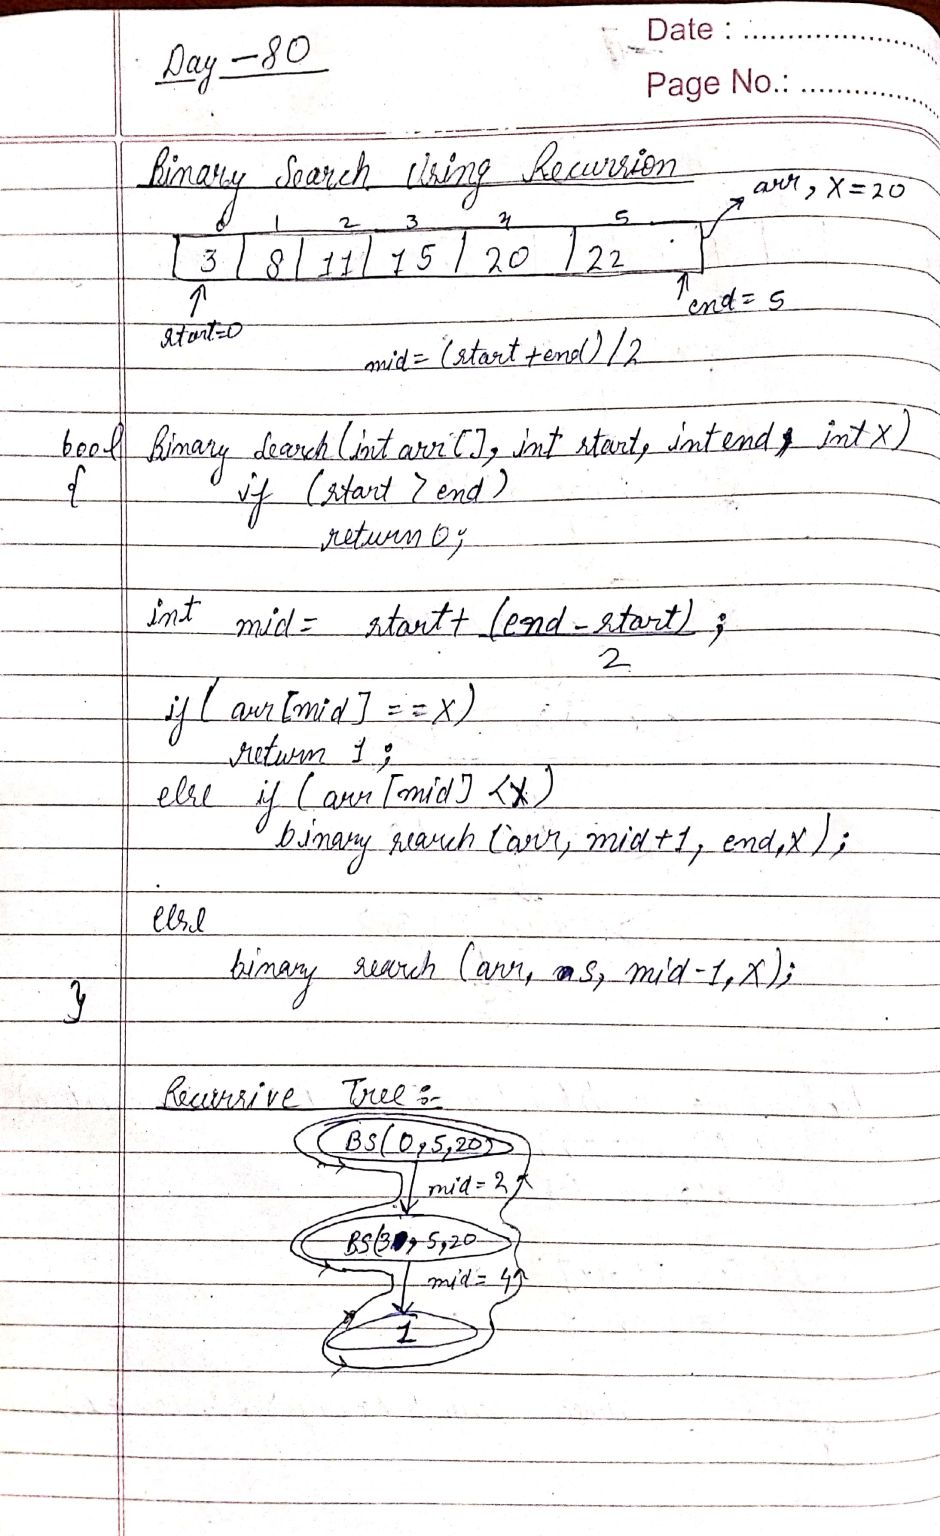 Date : ....................
Page No.: ....................
Day - 80
Binary Search Using Recursion
arr, X = 20
0 1 2 3 4 5
3 8 11 15 20 22
start=0
end = 5
mid = (start + end) / 2
bool Binary Search (int arr[], int start, int end, int X)
{ if (start > end)
return 0;
int mid = start + (end - start) ;
2
if ( arr [mid] == X)
return 1 ;
else if ( arr [mid] < X )
binary search (arr, mid+1, end, X );
else
binary search (arr, s, mid-1, X);
}
Recursive Tree :-
BS( 0, 5, 20)
mid = 2
BS(3, 5, 20
mid = 4
1